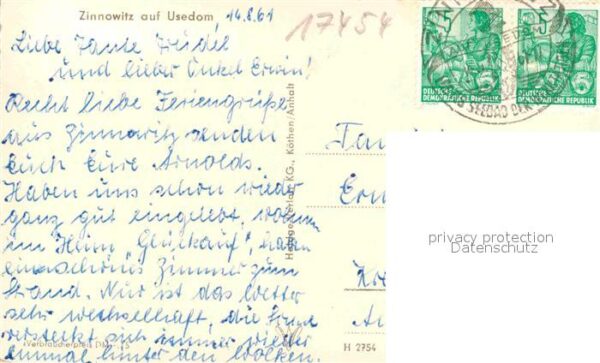 Zinnowitz auf Usedom 14.8.61
17454
Liebe Tante Friedel
und lieber Onkel Erwin!
Recht liebe Feriengrüße
aus Zinnowitz senden
Euch Eure Arnolds.
Haben uns schon wieder
ganz gut eingelebt, wohnen
im Heim "Glückauf", haben
ein schönes Zimmer zum
Strand. Nur ist das Wetter
sehr wechselhaft, die Sonne
versteckt sich immer wieder
einmal hinter den Wolken.
Verbraucherpreis DM
H 2754
KG., Köthen/Anhalt
DEUTSCHE
DEMOKRATISCHE REPUBLIK
DEUTSCHE
DEMOKRATISCHE REPUBLIK
5
5
SEEBAD DER
privacy protection
Datenschutz